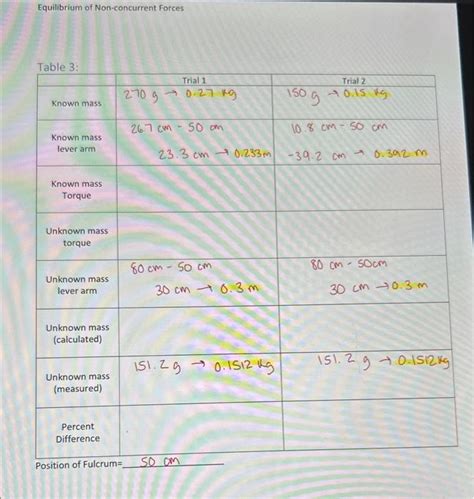 Equilibrium of Non-concurrent Forces
Table 3:
Trial 1 Trial 2
Known mass 270 g → 0.27 kg 150 g → 0.15 kg
Known mass lever arm
26.7 cm - 50 cm 10.8 cm - 50 cm
23.3 cm → 0.233 m -39.2 cm → 0.392 m
Known mass
Torque
Unknown mass
torque
Unknown mass lever arm
80 cm - 50 cm 80 cm - 50cm
30 cm → 0.3 m 30 cm → 0.3 m
Unknown mass
(calculated)
Unknown mass
(measured)
151.2 g → 0.1512 kg 151.2 g → 0.1512 kg
Percent
Difference
Position of Fulcrum= 50 cm